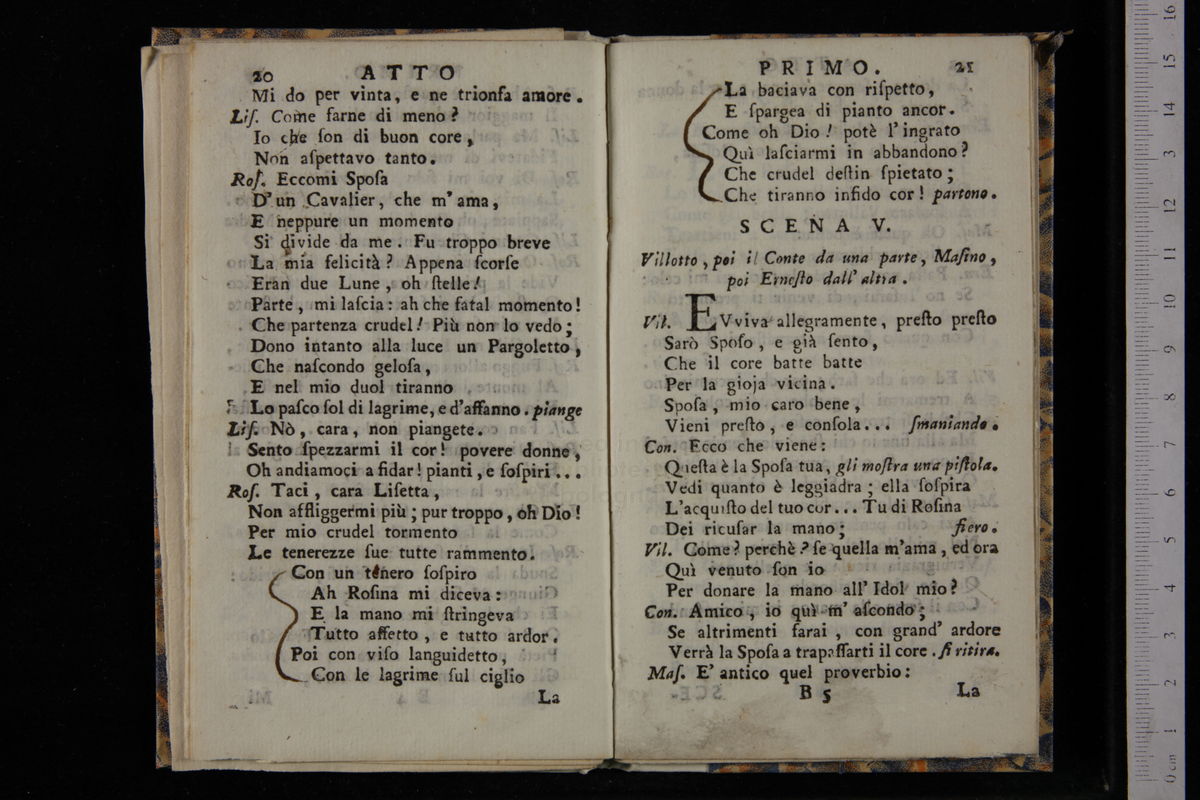 20 ATTO
Mi do per vinta, e ne trionfa amore.
Liſ. Come farne di meno?
Io che ſon di buon core,
Non aſpettavo tanto.
Roſ. Eccomi Spoſa
D'un Cavalier, che m'ama,
E neppure un momento
Si divide da me. Fu troppo breve
La mia felicità? Appena ſcorſe
Eran due Lune, oh ſtelle!
Parte, mi laſcia: ah che fatal momento!
Che partenza crudel! Più non lo vedo;
Dono intanto alla luce un Pargoletto,
Che naſcondo geloſa,
E nel mio duol tiranno
Lo paſco ſol di lagrime, e d'affanno. piange
Liſ. Nò, cara, non piangete.
Sento ſpezzarmi il cor! povere donne,
Oh andiamoci a fidar! pianti, e ſoſpiri...
Roſ. Taci, cara Liſetta,
Non affliggermi più; pur troppo, oh Dio!
Per mio crudel tormento
Le tenerezze ſue tutte rammento.
Con un tenero ſoſpiro
Ah Roſina mi diceva:
E la mano mi ſtringeva
Tutto affetto, e tutto ardor.
Poi con viſo languidetto,
Con le lagrime ſul ciglio
La
PRIMO. 21
La baciava con riſpetto,
E ſpargea di pianto ancor.
Come oh Dio! potè l'ingrato
Quì laſciarmi in abbandono?
Che crudel deſtin ſpietato;
Che tiranno infido cor! partono.
SCENA V.
Villotto, poi il Conte da una parte, Maſino,
poi Erneſto dall'altra.
Vil. EVviva allegramente, preſto preſto
Sarò Spoſo, e già ſento,
Che il core batte batte
Per la gioja vicina.
Spoſa, mio caro bene,
Vieni preſto, e conſola... ſmaniando.
Con. Ecco che viene:
Queſta è la Spoſa tua, gli moſtra una piſtola.
Vedi quanto è leggiadra; ella ſoſpira
L'acquiſto del tuo cor... Tu di Roſina
Dei ricuſar la mano; fiero.
Vil. Come? perchè? ſe quella m'ama, ed ora
Quì venuto ſon io
Per donare la mano all'Idol mio?
Con. Amico, io quì m'aſcondo;
Se altrimenti farai, con grand'ardore
Verrà la Spoſa a trapaſſarti il core. ſi ritira.
Maſ. E' antico quel proverbio:
B 5 La